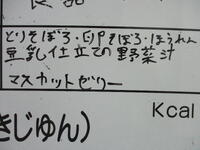 とりそぼろ・卵そぼろ・ほうれん
豆乳仕立ての野菜汁
マスカットゼリー
Kcal
きじゅん)